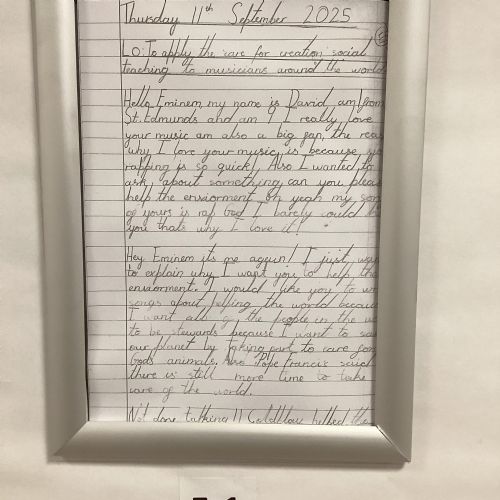 Thursday 11th September 2025
LO: To apply the care for creation social
teaching to musicians around the world
Hello Eminem my name is David, am from
St. Edmunds and am 9 I really love
your music am also a big fan, the rea
why I love your music is because yo
rapping is so quick! Also I wanted to
ask about something can you pleas
help the enviorment oh yeah my son
of yours is rap God I barely could he
you thats why I love it!
Hey Eminem its me aggun! I just wan
to explain why I want you to help the
enviorment. I would like you to wr
songs about helping the world becau
I want all of the people in the wo
to be stewards because I want to sa
our planet by taking part to care for
Gods animals. Also Pope Francis said
there is still more time to take
care of the world.
Not done talking!! Coldplay helped the